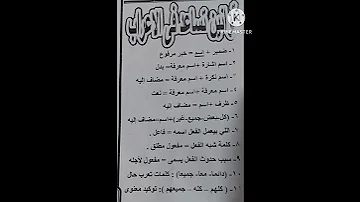 قوانين تساعد في الاعراب
١- ضمير + إسم = خبر مرفوع
٢- اسم اشارة + اسم معرفة = بدل
٣- اسم نكرة + اسم معرفة = مضاف اليه
٤- اسم معرفة + اسم معرفة = نعت
٥- ظرف + اسم = مضاف إليه
٦- (كل-بعض-جميع-غير)+اسم=مضاف إليه
٧- اللي بيعمل الفعل اسمه = فاعل .
٨- كلمة شبه الفعل = مفعول مطلق .
٩- سبب حدوث الفعل يسمى = مفعول لأجله
١٠- (دائما- معا- جميعا) : كلمات تعرب حال
١١- (كلهم – كله – جميعهم ): توكيد معنوى
KINEMASTER